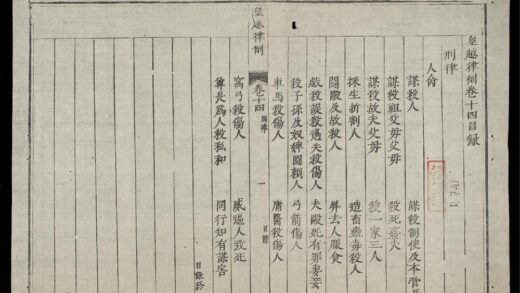 皇越律例卷十四目録
刑律
人命
謀殺人 謀殺制使及本管
謀殺祖父母父母 殺死姦夫
謀殺故夫父母 殺一家三人
採生折割人 造畜蠱毒殺人
鬪毆及故殺人 屏去人服食
戲殺誤殺過失殺傷人 夫毆死有罪妻妾
殺子孫及奴婢圖賴人 弓箭傷人
車馬殺傷人 庸醫殺傷人
皇越律例 卷十四 刑律 一 目錄
窩弓殺傷人 威逼人致死
尊長為人殺私和 同行知有謀害
目録終